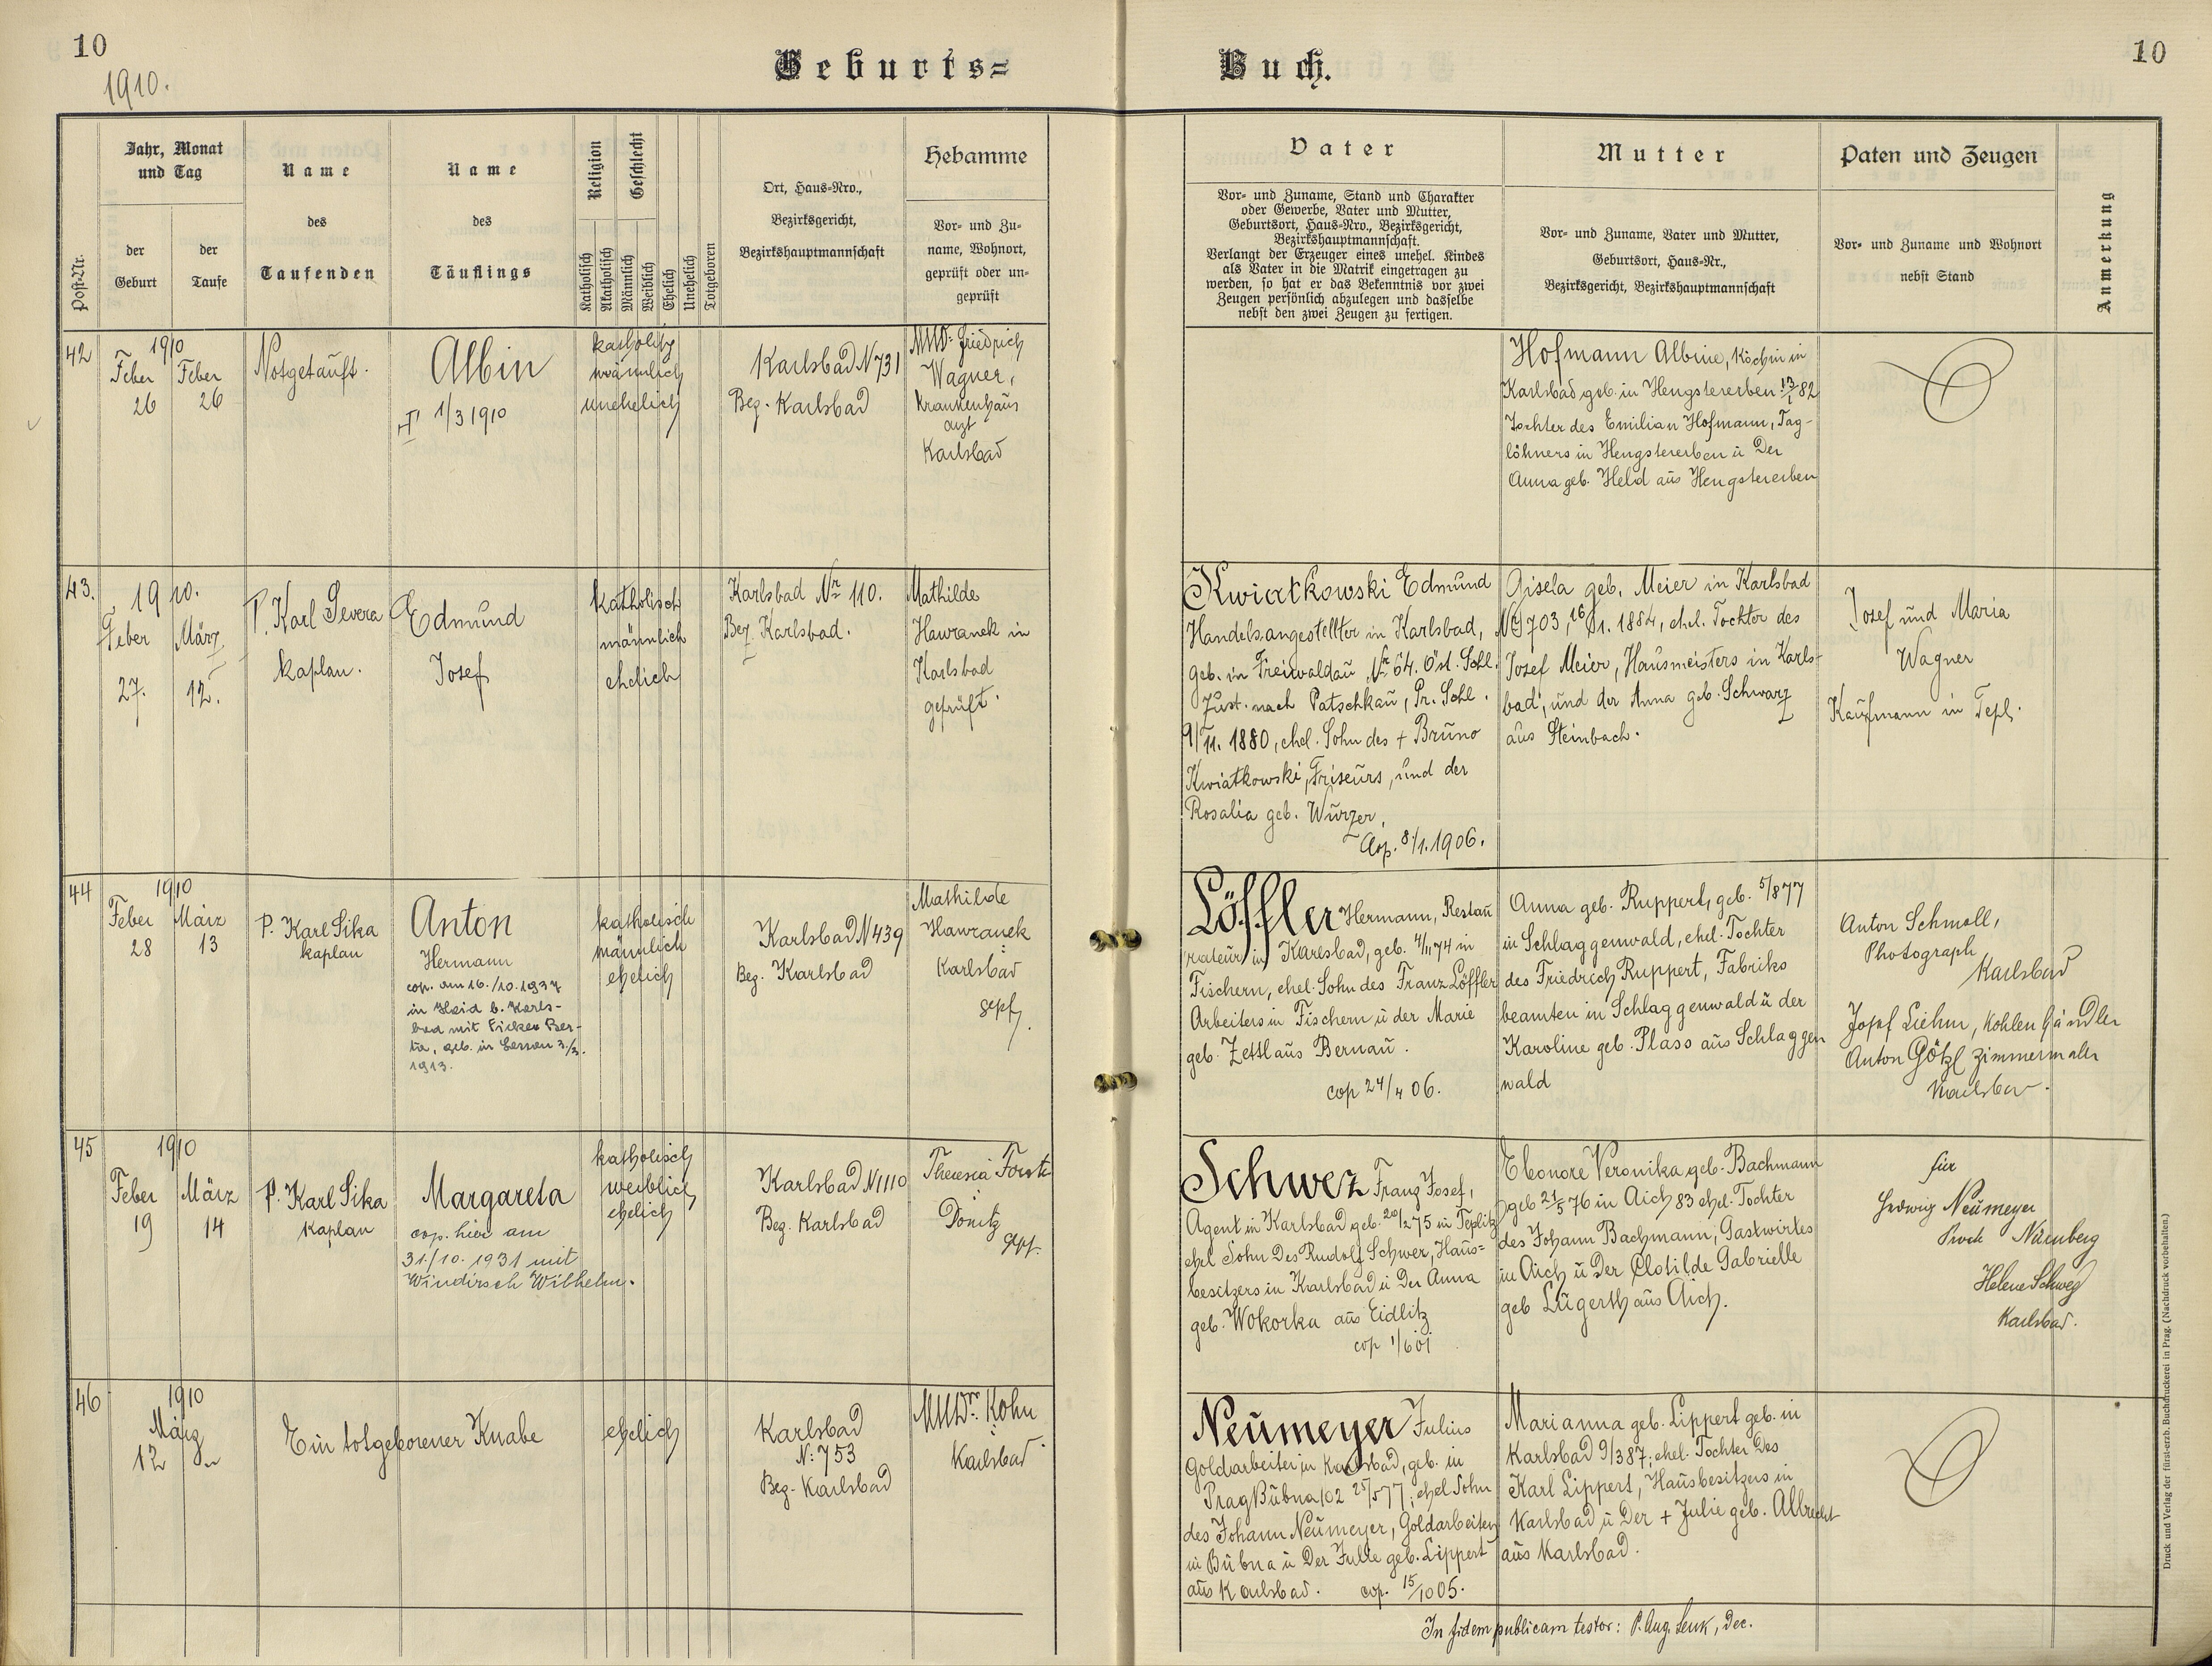 10
1910.
Geburts=
Buch.
10
Post-Nr.
Jahr, Monat
und Tag
der
Geburt
der
Taufe
Name
des
Taufenden
Name
des
Täuflings
Religion
Geschlecht
Katholisch
Akatholisch
Männlich
Weiblich
Ehelich
Unehelich
Totgeboren
Ort, Haus=Nro.,
Bezirksgericht,
Bezirkshauptmannschaft
Hebamme
Vor= und Zu=
name, Wohnort,
geprüft oder un=
geprüft
Vater
Vor= und Zuname, Stand und Charakter
oder Gewerbe, Vater und Mutter,
Geburtsort, Haus=Nro., Bezirksgericht,
Bezirkshauptmannschaft.
Verlangt der Erzeuger eines unehel. Kindes
als Vater in die Matrik eingetragen zu
werden, so hat er das Bekenntnis vor zwei
Zeugen persönlich abzulegen und dasselbe
nebst den zwei Zeugen zu fertigen.
Mutter
Vor= und Zuname, Vater und Mutter,
Geburtsort, Haus=Nr.,
Bezirksgericht, Bezirkshauptmannschaft
Paten und Zeugen
Vor= und Zuname und Wohnort
nebst Stand
Anmerkung
42
1910
Feber
26
Feber
26
Notgetauft.
Albin
1/3 1910
katholisch
männlich
unehelich
Karlsbad N 731
Bez. Karlsbad
MUDr Friedrich
Wagner,
Krankenhaus
arzt
Karlsbad
Hofmann Albine, Köchin in
Karlsbad geb. in Hengstererben 13/1 82
Tochter des Emilian Hofmann, Tag-
löhners in Hengstererben u Der
Anna geb. Held aus Hengstererben
43.
1910.
Feber
27.
März
12.
P. Karl Severa
kaplan.
Edmund
Josef
katholisch
männlich
ehelich
Karlsbad Nr 110.
Bez. Karlsbad.
Mathilde
Hawranek in
Karlsbad
geprüft.
Kwiatkowski Edmund
Handelsangestellter in Karlsbad,
geb. in Freiwaldau Nr 64. Öst. Schl.
Zust. nach Patschkau, Pr. Schl.
9/11. 1880, ehel. Sohn des + Bruno
Kwiatkowski, Friseurs, und der
Rosalia geb. Wurzer,
Cop. 8/1. 1906.
Gisela geb. Meier in Karlsbad
No 703, 16/1. 1884, ehel. Tochter des
Josef Meier, Hausmeisters in Karls-
bad, und der Anna geb. Schwarz
aus Steinbach.
Josef und Maria
Wagner
Kaufmann in Tepl.
44
1910
Feber
28
März
13
P. Karl Sika
kaplan
Anton
Hermann
cop. am 16./10.1937
in Haid b. Karls-
bad mit Ficker Ber-
ta, geb. in Lessau 3./3.
1913.
katholisch
männlich
ehelich
Karlsbad N 439
Bez. Karlsbad
Mathilde
Hawranek
Karlsbad
gepf.
Löffler Hermann, Restau
rateur in Karlsbad, geb. 4/11 74 in
Fischern, ehel. Sohn des Franz Löffler
Arbeiters in Fischern u der Marie
geb. Zettl aus Bernau.
cop 24/4 06.
Anna geb. Ruppert, geb. 5/8 77
in Schlaggenwald, ehel. Tochter
des Friedrich Ruppert, Fabriks
beamten in Schlaggenwald u der
Karoline geb. Plass aus Schlaggen
wald
Anton Schmoll,
Photograph
Karlsbad
Josef Liehm, Kohlenhändler
Anton Götzl Zimmermaler
Karlsbad.
45
1910
Feber
19
März
14
P. Karl Sika
kaplan
Margareta
cop. hier am
31/10. 1931 mit
Windirsch Wilhelm.
katholisch
weiblich
ehelich
Karlsbad N 1110
Bez. Karlsbad
Theresia
Donitz
gepf.
Schwez Franz Josef,
Agent in Karlsbad geb. 20/2 75 in Teplitz
ehel Sohn Des Rudolf Schwez, Haus=
besitzers in Karlsbad u Der Anna
geb. Wokorka aus Eidlitz
cop 1/6 01
Eleonore Veronika geb. Bachmann
geb 21/5 76 in Aich 83 ehel. Tochter
des Johann Bachmann, Gastwirtes
in Aich u Der Clotilde Gabrielle
geb Lugerth aus Aich.
für
Hedwig Neumeyer
Nürnberg
Helene Schwez
Karlsbad.
46
1910
März
12
Ein totgeborener Knabe
ehelich
Karlsbad
N: 753
Bez. Karlsbad
MUDr. Kohn
Karlsbad.
Neumeyer Julius
Goldarbeiter in Karlsbad, geb. in
Prag Bubna 102 25/5 77; ehel Sohn
des Johann Neumeyer, Goldarbeiters
in Bubna u Der Julie geb. Lippert
aus Karlsbad. cop. 15/10 05.
Marianna geb. Lippert geb. in
Karlsbad 9/3 87; ehel. Tochter Des
Karl Lippert, Hausbesitzers in
Karlsbad u Der + Julie geb. Albrecht
aus Karlsbad.
In fidem publicam testor: P. Aug. Lenk, Dec.
Druck und Verlag der fürst-erzb. Buchdruckerei in Prag. (Nachdruck vorbehalten.)